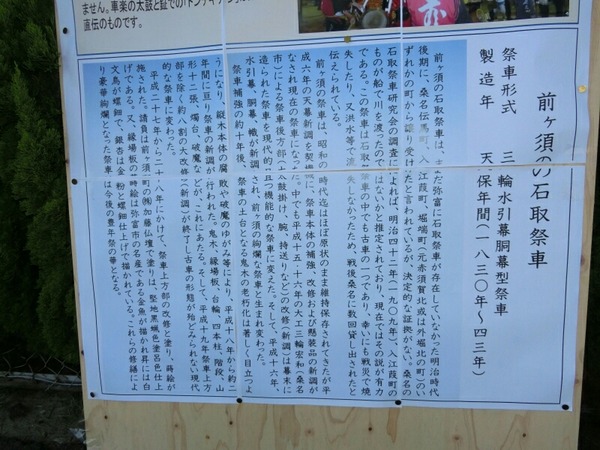 ません。車楽の太鼓と鉦での「ドンチキチン
直伝のものです。
前ヶ須の石取祭車
祭車形式　三輪水引幕胴幕型祭車
製造年　天保年間(一八三〇年～四三年)
前ヶ須の石取祭車は、まだ弥富に石取祭車が存在していなかった明治時代
後期に、桑名伝馬町、入江葭町、堀端町(元赤須賀北)或は外堀北の町のい
ずれかの町から譲り受けたと言われているが、決定的な証拠がない。桑名の
石取祭車研究会の調査によれば、明治四十二年(一九〇九年)、入江葭町の
ものが船で川を渡ったのではないかと推定されており、現在ではその説が有力
である。この祭車は石取祭車の中でも古車の一つであり、幸いにも戦災で焼
失したり、又洪水等で流失しなかったため、戦後桑名に数回貸し出されたと
伝えられている。
前ヶ須の祭車は、昭和の時代迄はほぼ原状のまま維持保存されてきたが平
成六年の天幕新調を契機に、祭車本体の補強、改修および懸装品の新調が
なされ現在の祭車になった。中でも平成十五・十六年の大工三輪宏和(桑名
市)による祭車後方部の太鼓掛け、腕、持送りなどの改修(新調)は幕末に
造られた祭車を現代的且つ機能的な祭車に変えた。そして、平成十六年、
水引幕、胴幕、幟が新調され、前ヶ須の絢爛な祭車と生まれ変わった。
祭車補強の約十年後、祭車の土台となる鬼木の老朽化は著しく目立つよ
うになり、縦木本体の腐敗や破魔のゆがみ等により、平成十八年から約二
年間に亘り祭車の新調が行われた。鬼木、縁場板、台輪、四本柱、階段、山
形十二張、燭台、破魔などが、これにあたる。そして、平成十九年祭車上方
部を除く約八割の大改修(新調)が終了し古車の形態が殆どみられない現代
的な祭車に変わった。
平成二十七年から二十八年にかけて、祭車上方部の改修と塗り、蒔絵が
施された。請負は前ヶ須一町の㈱加藤仏壇で塗りは、堅地黒蝋色塗呂色仕上
げである。又、縁場板の蒔絵は弥富市の名産である金魚が描かれ昇には白
文鳥が螺鈿で、銀杏は金粉と螺鈿仕上げで描かれている。これらの修繕によ
り豪華絢爛となった祭車は今後の豊年祭の華となる。